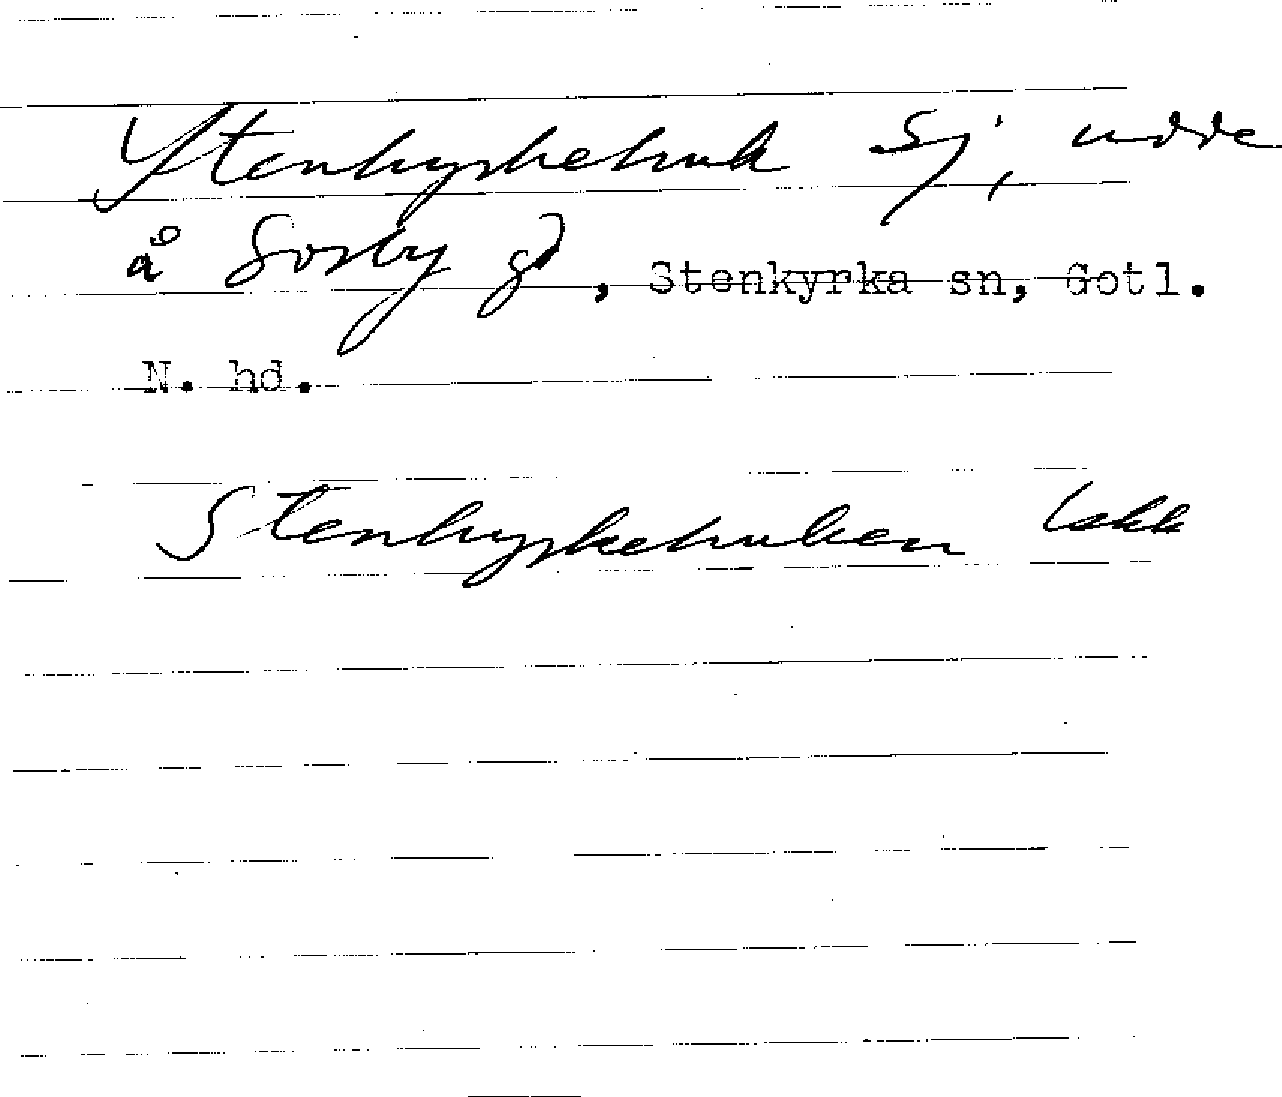 Stenkyrkehuk Sj, udde
å Sorby gd, Stenkyrka sn, Gotl.
N. hd.
Stenkyrkehuken